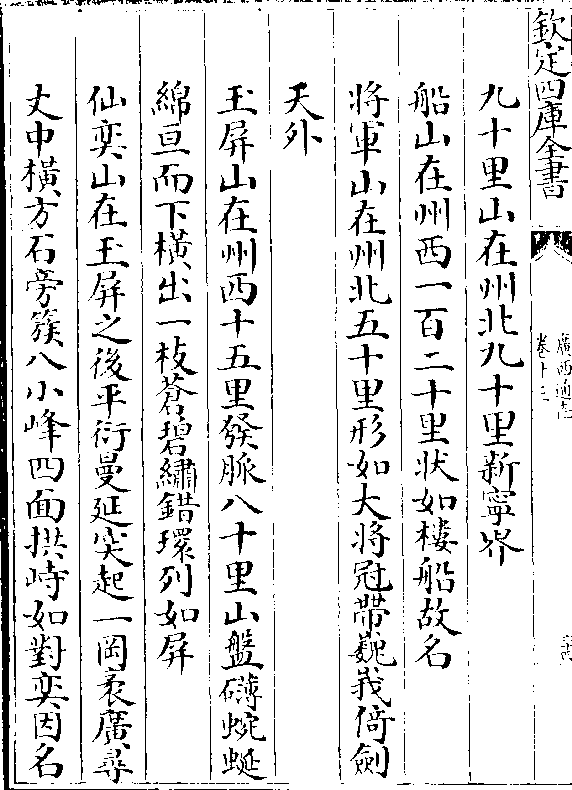 欽定四庫全書
廣西通志
卷十三
九十里山在州北九十里新寧界
船山在州西一百二十里狀如樓船故名
將軍山在州北五十里形如大將冠帶巍峩倚劍
天外
玉屏山在州西十五里發脈八十里山盤礴蜿蜒
綿亘而下橫出一枝蒼碧繡錯環列如屏
仙奕山在玉屏之後平衍曼延突起一岡袤廣尋
丈中橫方石旁簇八小峰四面拱峙如對奕因名